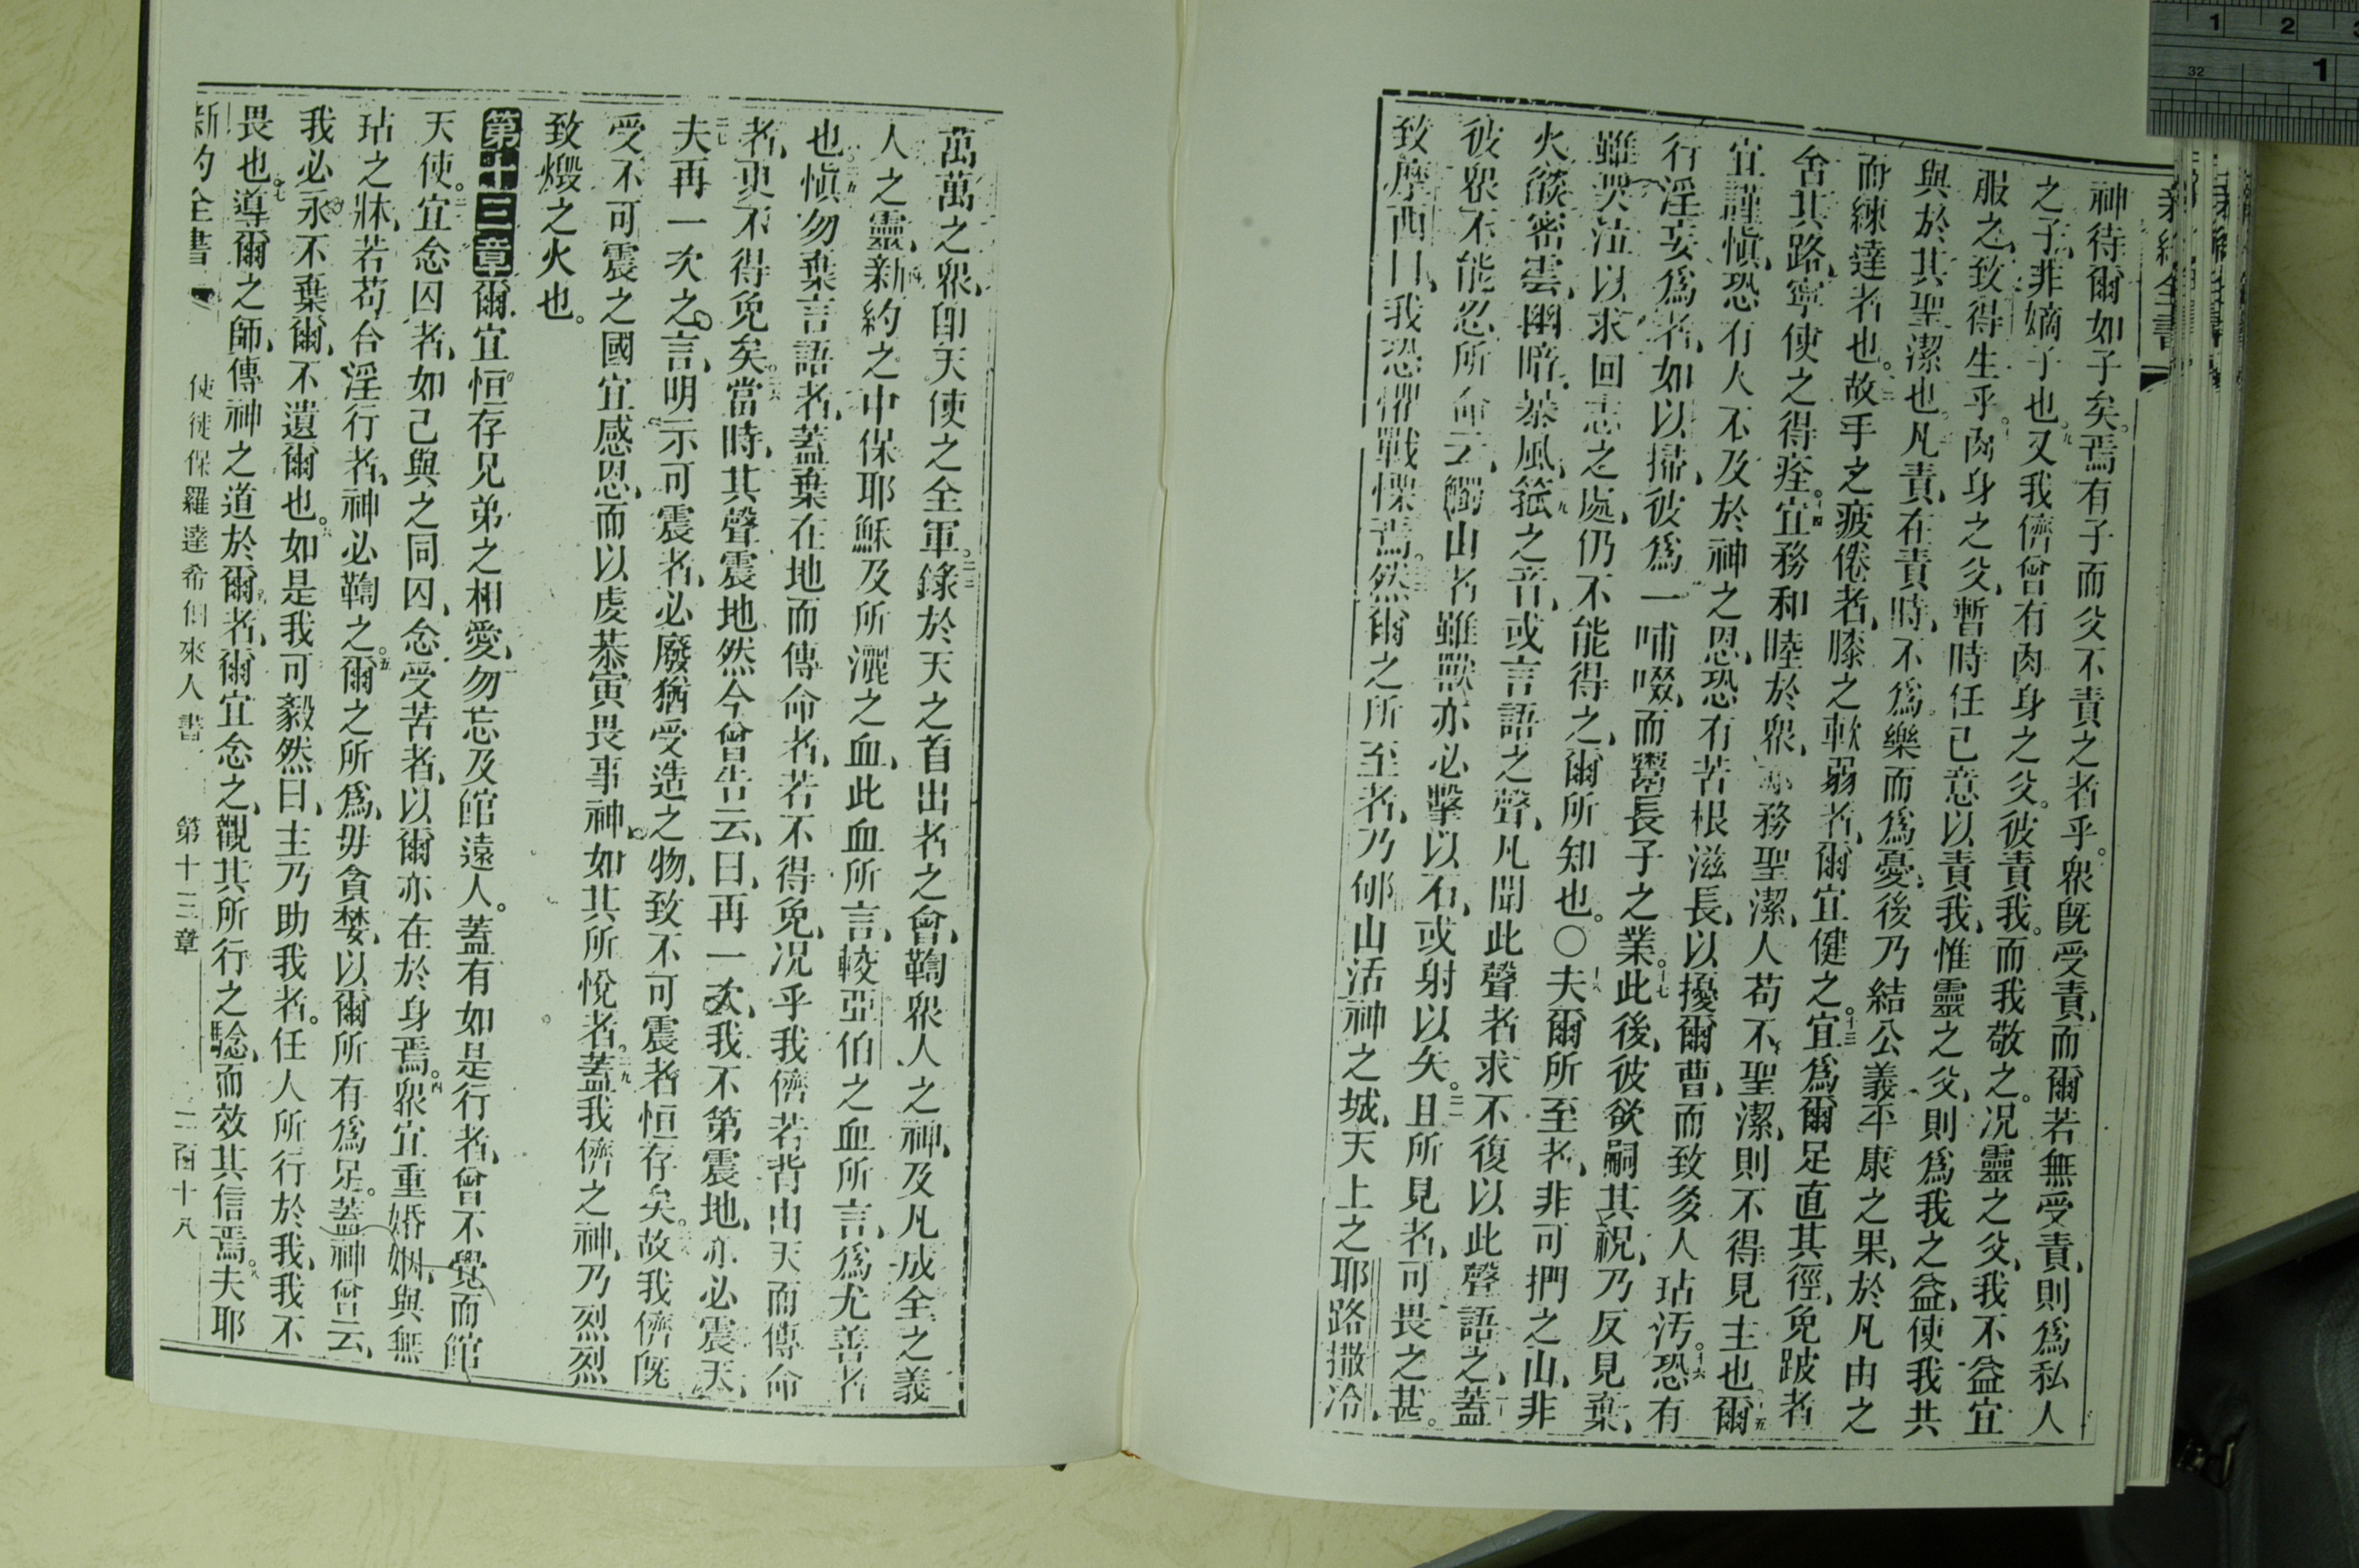 新約全書
神待爾如子矣。焉有子而父不責之者乎。眾既受責、而爾若無受責、則為私人
之子、非嫡子也。九又我儕曾有肉身之父。彼責我。而我敬之。况靈之父、我不益宜
服之、致得生乎。十肉身之父、暫時任己意以責我、惟靈之父、則為我之益、使我共
與於其聖潔也。凡責、在責時、不為樂而為憂、後乃結公義平康之果、於凡由之
而練達者也。十二故手之疲倦者、膝之軟弱者、爾宜健之。十三宜為爾足直其徑、免跛者
舍其路、寧使之得痊。十四宜務和睦於眾、亦務聖潔、人苟不聖潔、則不得見主也。十五爾
宜謹慎、恐有人不及於神之恩、恐有苦根滋長、以擾爾曹、而致多人玷污。十六恐有
行淫妄為者、如以掃、彼為一哺啜、而鬻長子之業。十七此後、彼欲嗣其祝、乃反見棄、
雖哭泣以求回志之處、仍不能得之、爾所知也。○十八夫爾所至者、非可捫之山、非
火燄密雲、幽暗、暴風、十九箛之音、或言語之聲、凡聞此聲者、求不復以此聲語之、蓋
彼眾不能忍所命云、觸山者雖獸亦必擊以石、或射以矢。二一且所見者、可畏之甚。
致摩西曰、我恐懼戰慄焉。然爾之所至者、乃郇山、活神之城、天上之耶路撒冷、
萬萬之眾、即天使之全軍。二三錄於天之首出者之會、鞫眾人之神、及凡成全之義
人之靈、二四新約之中保耶穌、及所灑之血、此血所言、較亞伯之血所言、為尤善者
也。慎勿棄言語者、蓋棄在地而傳命者、若不得免、况乎我儕若背由天而傳命
者、更不得免矣。二六當時、其聲震地、然今曾告云、曰、再一次、我不第震地、亦必震天、
二七夫再一次之言、明示可震者、必廢、猶受造之物、致不可震者恒存矣。二八故我儕既
受不可震之國、宜感恩、而以虔恭寅畏事神、如其所悅者。二九蓋我儕之神、乃烈烈
致燬之火也。
第十三章爾宜恒存兄弟之相愛、勿忘及館遠人。蓋有如是行者、曾不覺而館
天使。三宜念囚者、如己與之同囚、念受苦者、以爾亦在於身焉。四眾宜重婚姻、與無
玷之牀、若苟合淫行者、神必鞫之。五爾之所為、毋貪婪、以爾所有為足。蓋神曾云、
我必永不棄爾、不遺爾也。六如是我可毅然曰、主乃助我者。任人所行於我、我不
畏也。七導爾之師、傳神之道於爾者、爾宜念之、觀其所行之騐、而效其信焉。八夫耶
新約全書 使徒保羅達希伯來人書 第十三章 二百十八